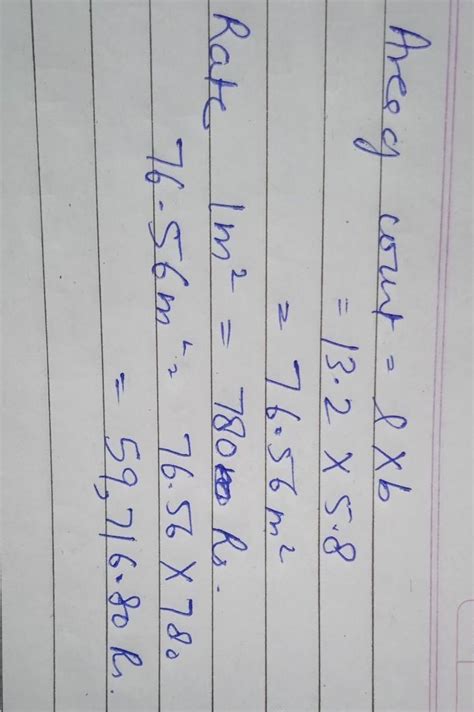 Area of court = l x b
= 13.2 x 5.8
= 76.56 m²
Rate 1m² = 780 Rs.
76.56m² = 76.56 x 780
= 59,716.80 Rs.